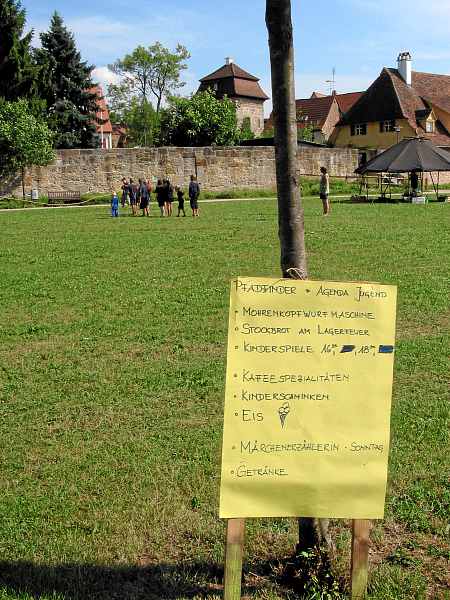 PFADFINDER + AGENDA JUGEND
• MOHRENKOPFWURFMASCHINE
• STOCKBROT AM LAGERFEUER
• KINDERSPIELE 16⁰⁰, 18⁰⁰
• KAFFEESPEZIALITÄTEN
• KINDERSCHMINKEN
• EIS
• MÄRCHENERZÄHLERIN - SONNTAG
• GETRÄNKE